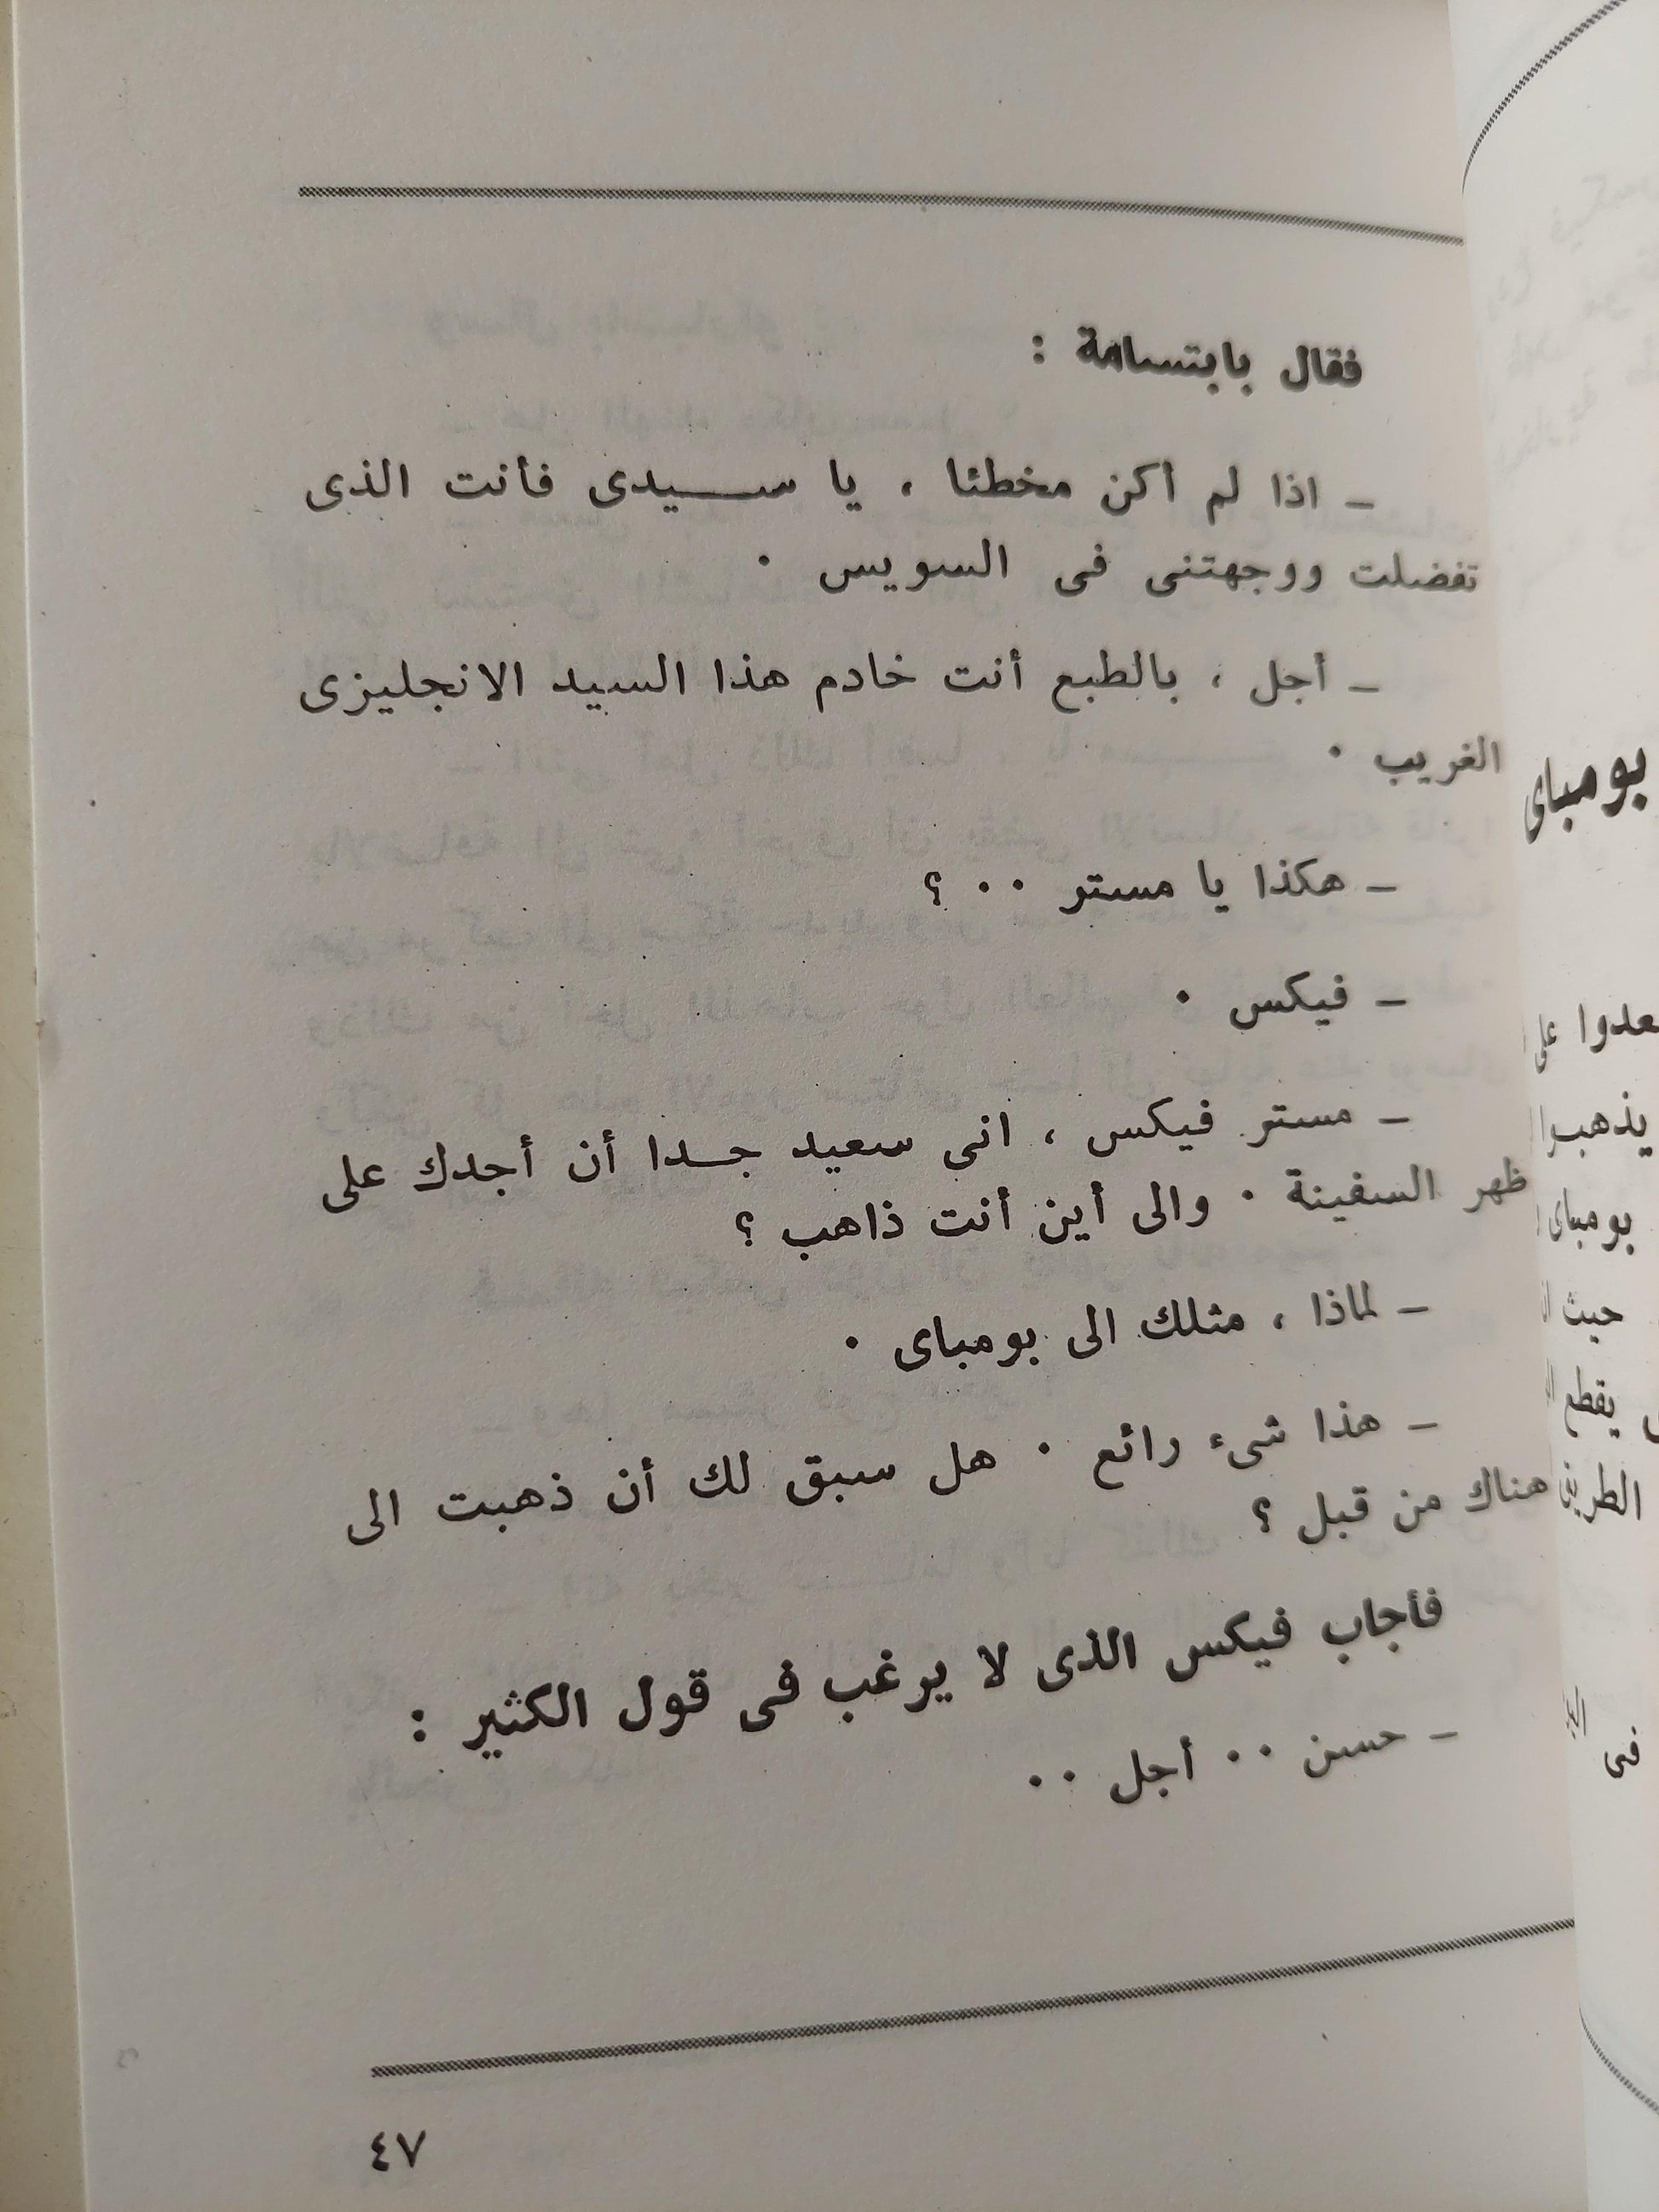 فقال بابتسامة :
ـ اذا لم أكن مخطئا ، يا ســـيدى فأنت الذى
تفضلت ووجهتنى فى السويس .
ـ أجل ، بالطبع أنت خادم هذا السيد الانجليزى
الغريب .
ـ هكذا يا مستر .. ؟
ـ فيكس .
ـ مستر فيكس ، انى سعيد جـدا أن أجدك على
ظهر السفينة . والى أين أنت ذاهب ؟
ـ لماذا ، مثلك الى بومباى .
ـ هذا شىء رائع . هل سبق لك أن ذهبت الى
هناك من قبل ؟
فأجاب فيكس الذى لا يرغب فى قول الكثير :
ـ حسن .. أجل ..
٤٧
بومباى
يذهبوا
بومباى
حيث
يقطع
فى